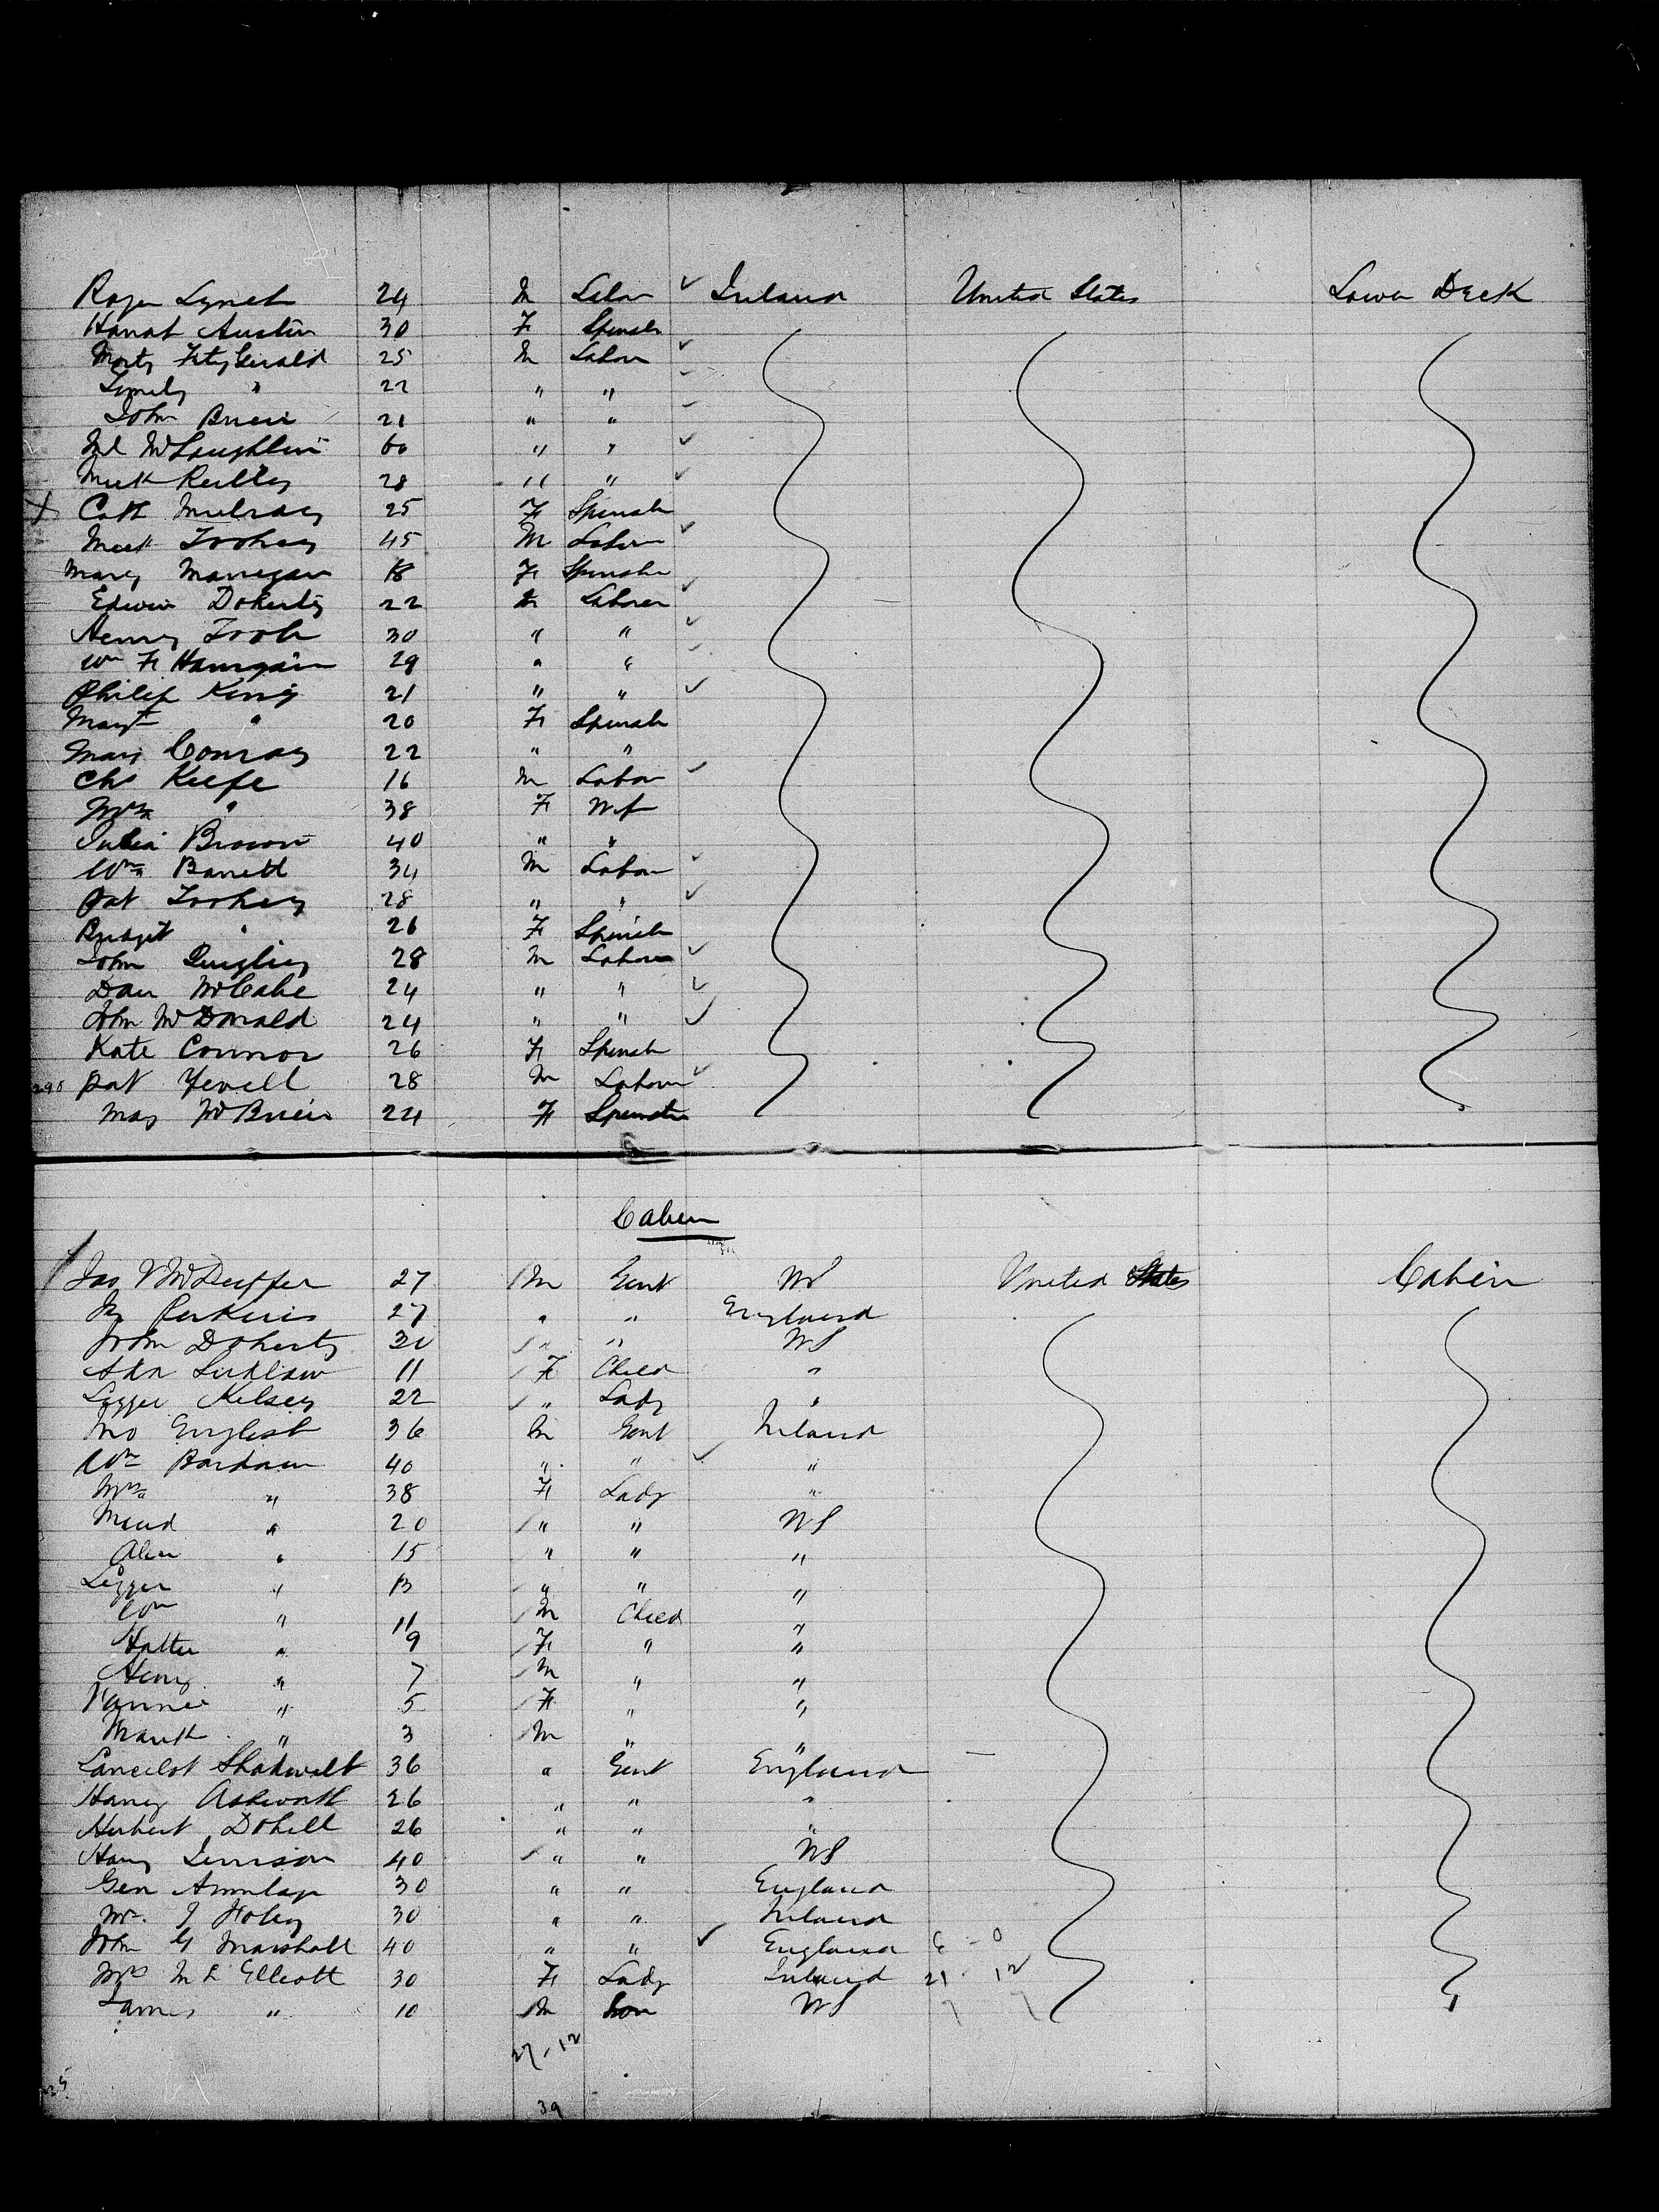 Roger Lynch 24 M Labor ✓ Ireland United States Lower Deck
Hanah Austin 30 F Spinstr
Morty FitzGerald 25 M Labor ✓
" 22 " "
John Brien 21 " "
Ml McLaughlin 60 " " ✓
Mick Reilly 28 " " ✓
X Cath Mulray 25 F Spinstr
Mick Toohey 45 M Labor ✓
Mary Mannegan 18 F Spinstr
Edwin Doherty 22 M Laborer ✓
Henry Toole 30 " " ✓
Wm F Hanigain 29 " "
Philip King 21 " " ✓
Margt " 20 F Spinstr
Mary Conray 22 " "
Chs Keefe 16 M Labor ✓
Mrs " 38 F Wif
Julia Brown 40 " "
Wm Barrett 34 M Labor ✓
Pat Toohey 28 " " ✓
Bridget " 26 F Spinstr
John Quigley 28 M Labor ✓
Dan McCabe 24 " " ✓
John McDonald 24 " " ✓
Kate Connor 26 F Spinstr
290 Pat 28 M Labor ✓
Mary McBrien 24 F Spinster
Cabin
Jas V McDuffee 27 M Gent US United States Cabin
Perkins 27 " " England
John Doherty 30 " " US
Ada 11 F Child "
Lizzie Kelsey 22 " Lady "
Jno English 36 M Gent Ireland
Wm Barham 40 " " ✓ "
Mrs " 38 F Lady "
Maud " 20 " " US
Alice " 15 " " "
Lizzie " 13 " " "
Wm " 11 M Child "
Hattie " 9 F " "
Henry " 7 M " "
Fannie " 5 F " "
Mark " 3 M " "
Lancelot Shadwell 36 " Gent England
Harry Ashworth 26 " " "
Herbert Dobell 26 " " "
Harry Denison 40 " " US
Geo Armitage 30 " " England
Mr. J Foley 30 " " Ireland
John G Marshall 40 " " ✓ England 6 - 0
Mrs M L Elliott 30 F Lady Ireland 21 - 12
James " 10 M Son US 7 7
27-12
25
39